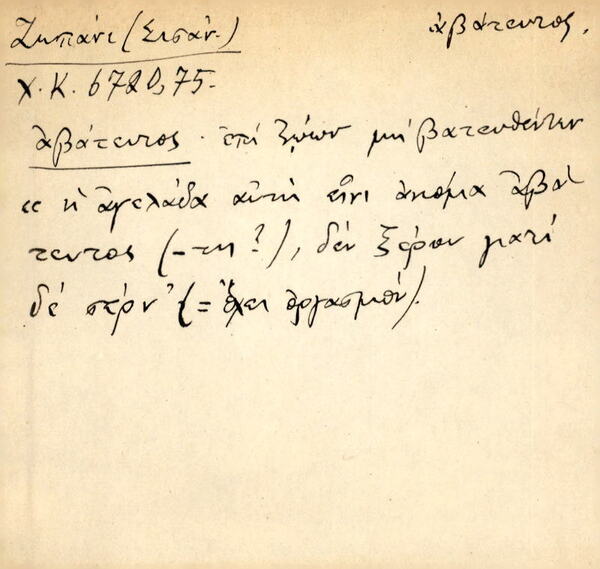 Ζουπάνι (Σισάν.)
ἀβάτευτος.
χ.κ. 6720, 75.
ἀβάτευτος · ἐπί ζῴων μή βατευθέντων
«ἡ ἀγελάδα αὐτή εἶνι ἀκόμα ἀβά
τευτος (-τη?), δέν ξέρου γιατί
δέ σέρν' (= ἔχει ὀργασμόν).